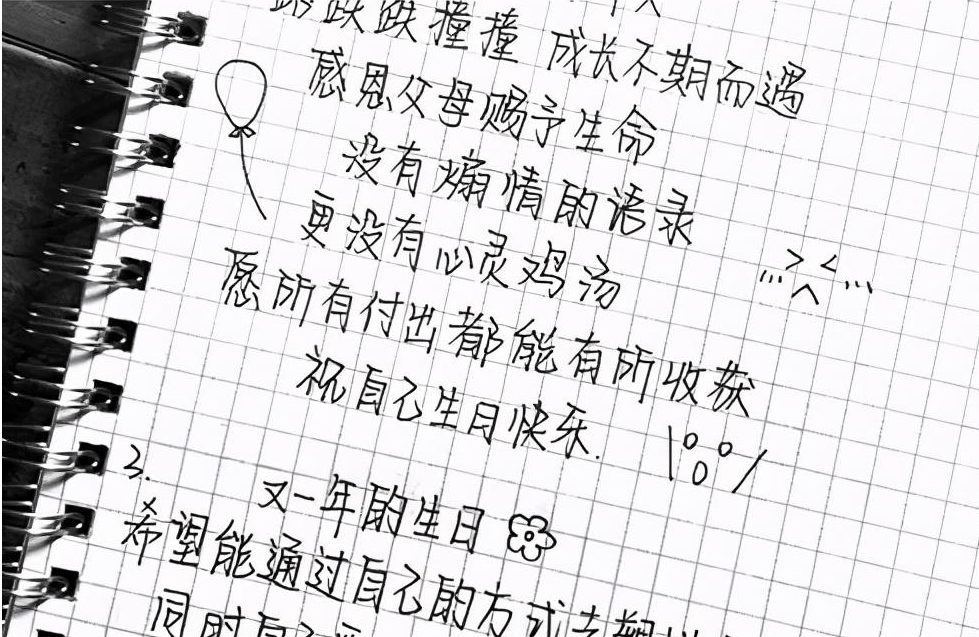 跌跌撞撞 成长不期而遇
感恩父母赐予生命
没有煽情的语录
更没有心灵鸡汤
愿所有付出都能有所收获
祝自己生日快乐.
3.
又一年的生日
希望能通过自己的方式去塑
同时自己